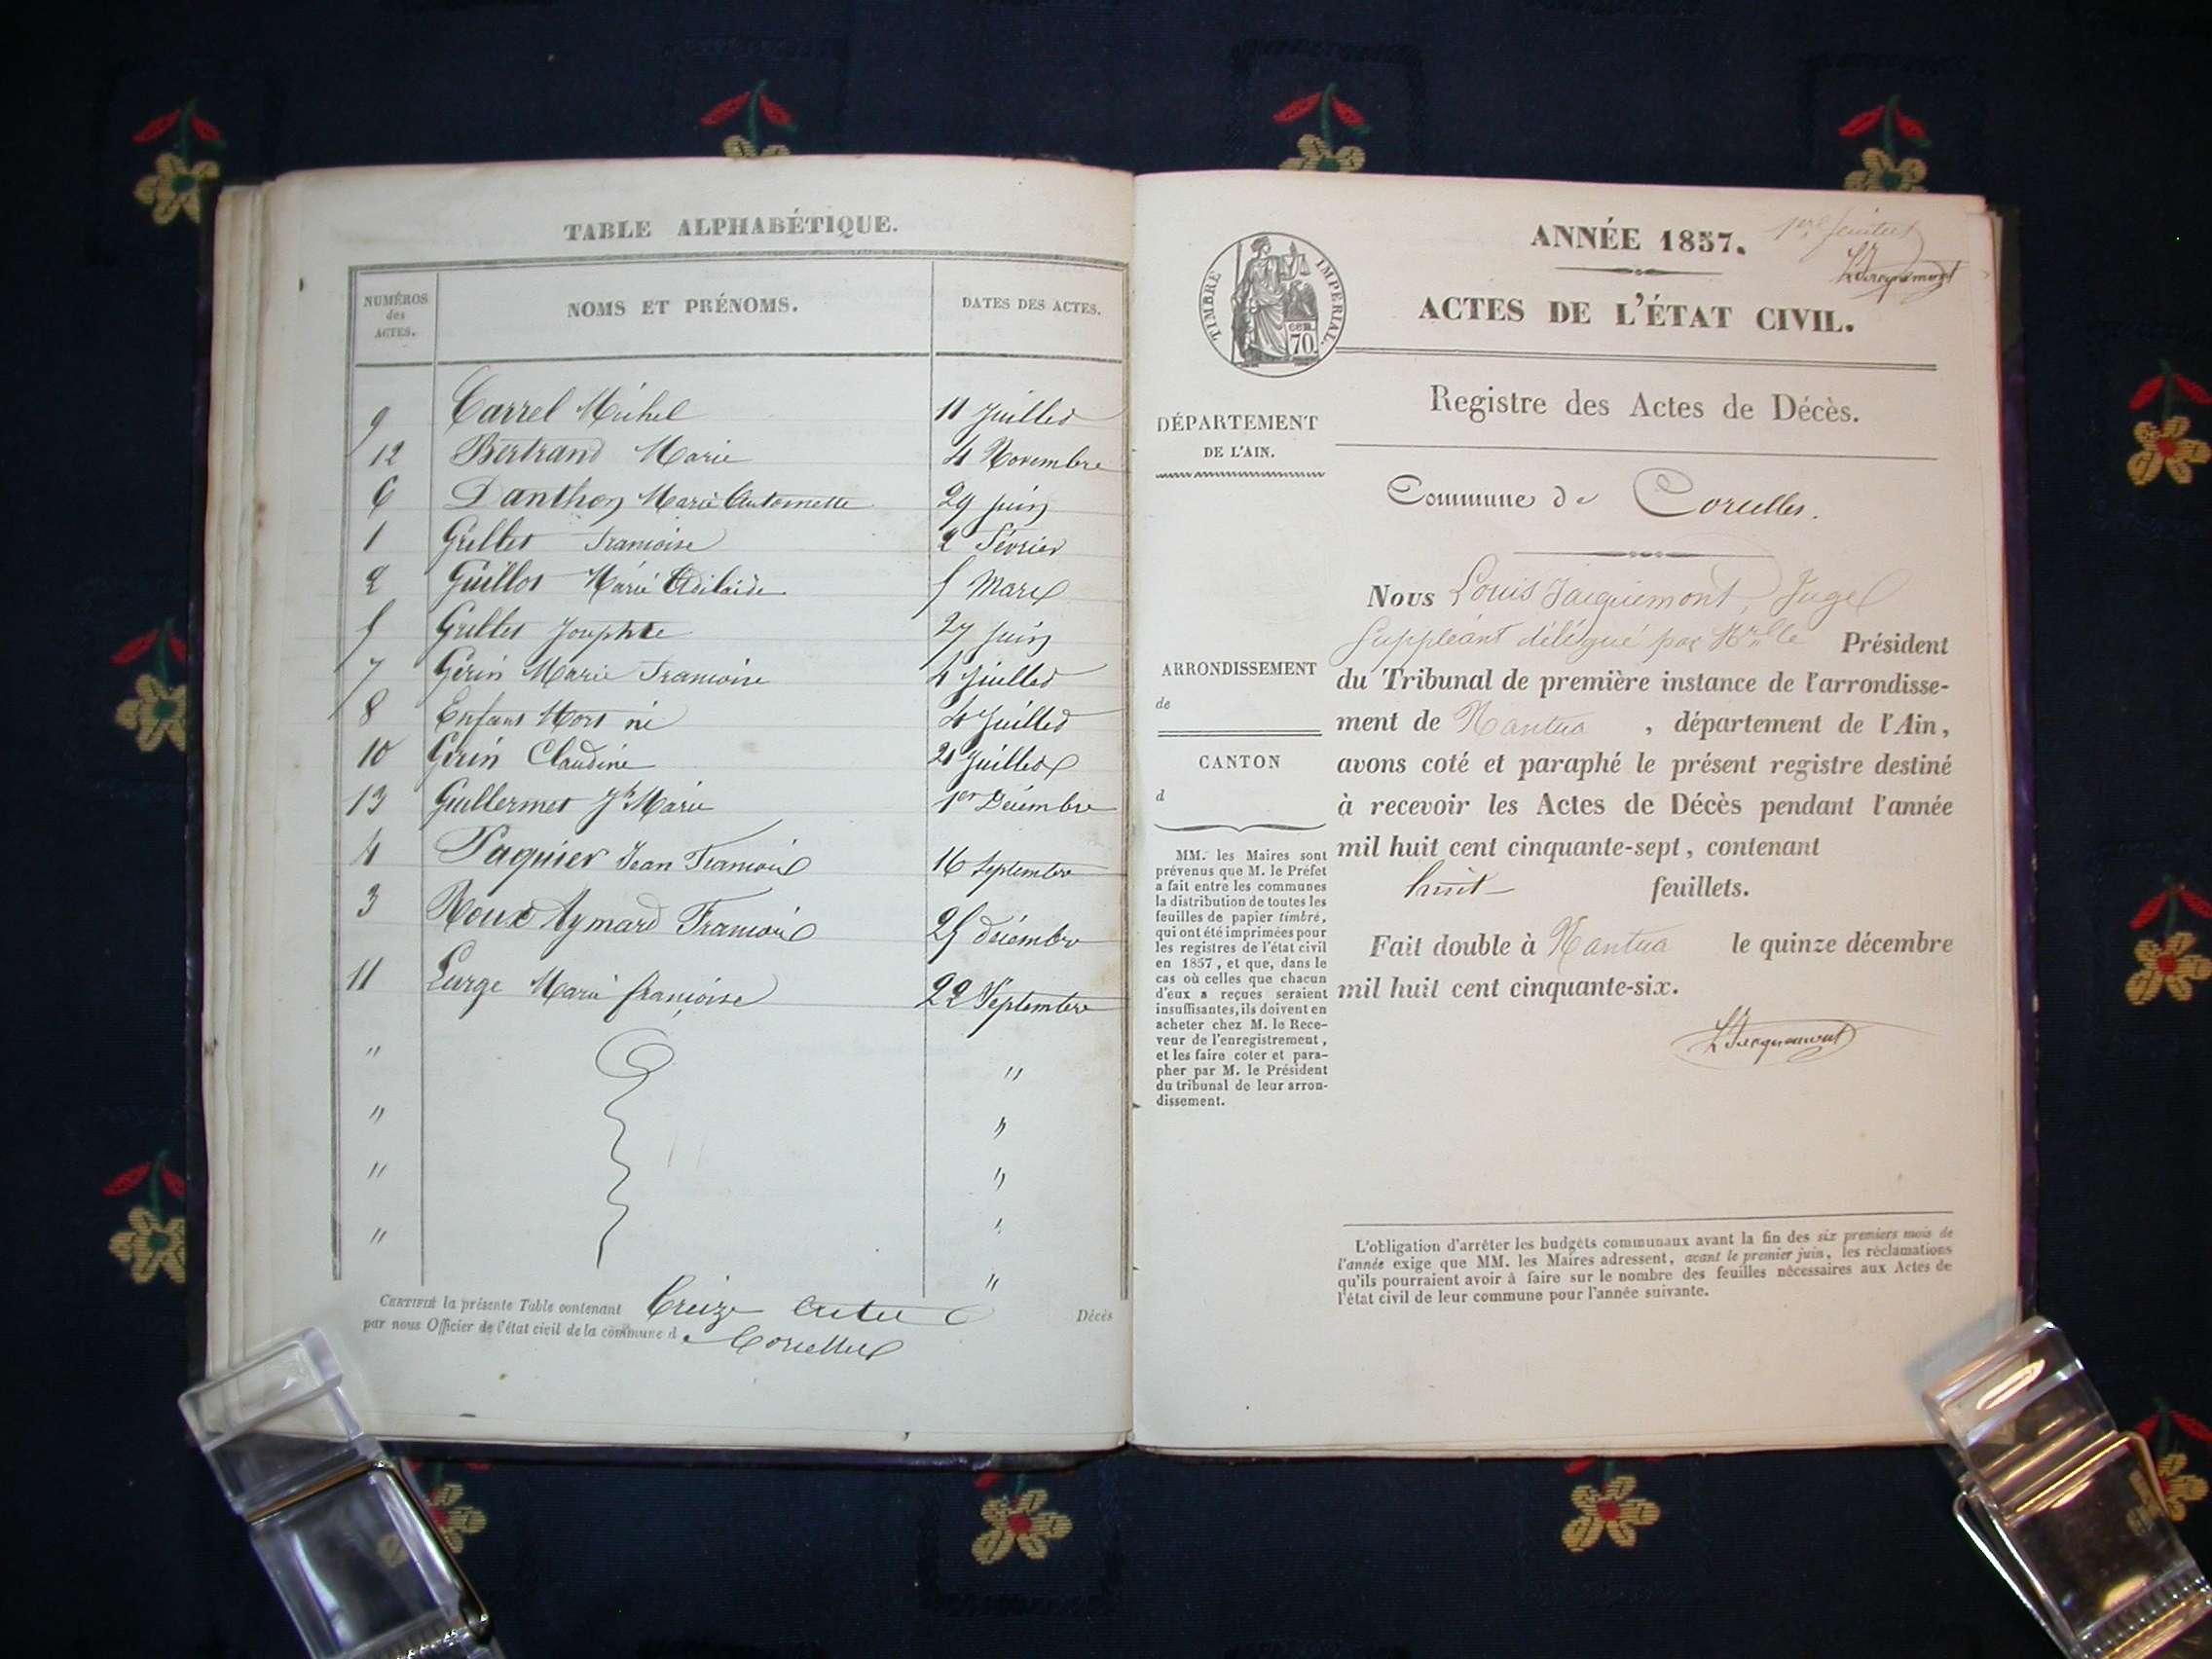 TABLE ALPHABÉTIQUE.
NUMÉROS des ACTES.
NOMS ET PRÉNOMS.
DATES DES ACTES.
9 Carrel Michel 11 Juillet
12 Bertrand Marie 4 Novembre
6 Danthon Marie Antoinette 29 juin
1 Grillet Francoise 2 Février
2 Guillot Marie Adélaïde 5 Mars
5 Grillet Josephte 27 juin
7 Gérin Marie Francoise 4 Juillet
8 Enfant Mort né 4 Juillet
10 Gérin Claudine 21 Juillet
13 Guillermet Jh Marie 1er Décembre
4 Paquier Jean François 16 Septembre
3 Roux Aymard François 25 décembre
11 Lurge Marie françoise 22 Septembre
" "
" "
" "
" "
"
CERTIFIÉ la présente Table contenant Treize Actes Décès
par nous Officier de l'état civil de la commune de Corcelles
ANNÉE 1857. 1er feuillet
LJacquemont
TIMBRE IMPÉRIAL.
CEN. 70.
ACTES DE L'ÉTAT CIVIL.
Registre des Actes de Décès.
DÉPARTEMENT
DE L'AIN.
Commune de Corcelles.
Nous Louis Jacquemont, Juge
Suppléant délégué par Mr le Président
ARRONDISSEMENT
de
CANTON
d
du Tribunal de première instance de l'arrondisse-
ment de Nantua , département de l'Ain,
avons coté et paraphé le présent registre destiné
à recevoir les Actes de Décès pendant l'année
mil huit cent cinquante-sept, contenant
huit feuillets.
Fait double à Nantua le quinze décembre
mil huit cent cinquante-six.
LJacquemont
MM. les Maires sont
prévenus que M. le Préfet
a fait entre les communes
la distribution de toutes les
feuilles de papier timbré,
qui ont été imprimées pour
les registres de l'état civil
en 1857, et que, dans le
cas où celles que chacun
d'eux a reçues seraient
insuffisantes, ils doivent en
acheter chez M. le Rece-
veur de l'enregistrement,
et les faire coter et para-
pher par M. le Président
du tribunal de leur arron-
dissement.
L'obligation d'arrêter les budgets communaux avant la fin des six premiers mois de
l'année exige que MM. les Maires adressent, avant le premier juin, les réclamations
qu'ils pourraient avoir à faire sur le nombre des feuilles nécessaires aux Actes de
l'état civil de leur commune pour l'année suivante.